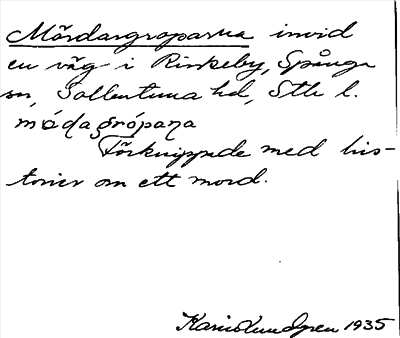 Mördargroparna invid
en väg i Rinkeby, Spånga
sn, Sollentuna hd, Sthlm l.
mö́dagrópaṇa
Förknippade med his-
torier om ett mord.
Karin Lundgren 1935